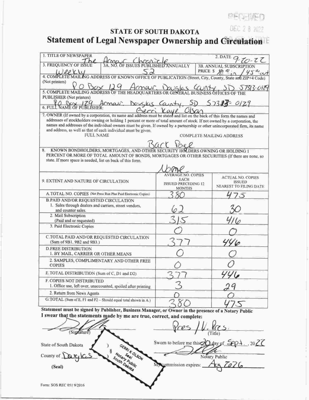 STATE OF SOUTH DAKOTA
Statement of Legal Newspaper Ownership and Circulation
1. TITLE OF NEWSPAPER The Armour Chronicle
2. DATE 9-20-22
3. FREQUENCY OF ISSUE Weekly
3A. NO. OF ISSUES PUBLISHED ANNUALLY 52
3B. ANNUAL SUBSCRIPTION PRICE $
4. COMPLETE MAILING ADDRESS OF KNOWN OFFICE OF PUBLICATION (Street, City, County, State and ZIP+4 Code) (Not printers)
PO Box 129 Armour Douglas County, SD 57313-0129
5. COMPLETE MAILING ADDRESS OF THE HEADQUARTERS OR GENERAL BUSINESS OFFICES OF THE PUBLISHER (Not printers)
PO Box 129 Armour, Douglas County, SD 57313-0129
6. FULL NAME OF PUBLISHER
7. OWNER (If owned by a corporation, its name and address must be stated and also on the back of this form the names and addresses of stockholders owning or holding 1 percent or more of total amount of stock. If not owned by a corporation, the names and addresses of the individual owners must be given. If owned by a partnership or other unincorporated firm, its name and address, as well as that of each individual must be given.
FULL NAME COMPLETE MAILING ADDRESS
8. KNOWN BONDHOLDERS, MORTGAGES, AND OTHER SECURITY HOLDERS OWNING OR HOLDING 1 PERCENT OR MORE OF TOTAL AMOUNT OF BONDS, MORTGAGES OR OTHER SECURITIES (If there are none, so state. If more space is needed, list on back of this form.
None
9. EXTENT AND NATURE OF CIRCULATION
AVERAGE NO. COPIES EACH ISSUED PRECEDING 12 MONTHS
ACTUAL NO. COPIES ISSUED NEAREST TO FILING DATE
A. TOTAL NO. COPIES 380 475
B. PAID AND/OR REQUESTED CIRCULATION
1. Sales through dealers and carriers, street vendors, and counter sales. 62 30
2. Mail Subscription (Paid and/or requested) 315 416
3. Paid Electronic Copies 0 0
C. TOTAL PAID AND/OR REQUESTED CIRCULATION (Sum of 9B1, 9B2 and 9B3.) 377 446
D. FREE DISTRIBUTION
1. BY MAIL, CARRIER OR OTHER MEANS 0 0
2. SAMPLES, COMPLIMENTARY AND OTHER FREE COPIES 0 0
E. TOTAL DISTRIBUTION (Sum of C, D1 and D2) 377 446
F. COPIES NOT DISTRIBUTED
1. Office use, left over, unaccounted, spoiled after printing 3 29
2. Return from News Agents 0 0
G. TOTAL (Sum of E, F1 and F2 - Should equal total shown in A.) 380 475
Statement must be signed by Publisher, Business Manager, or Owner in the presence of a Notary Public
I swear that the statements made by me are true, correct, and complete:
(Signature) (Title)
State of South Dakota
County of Douglas
(Seal)
Notary Public